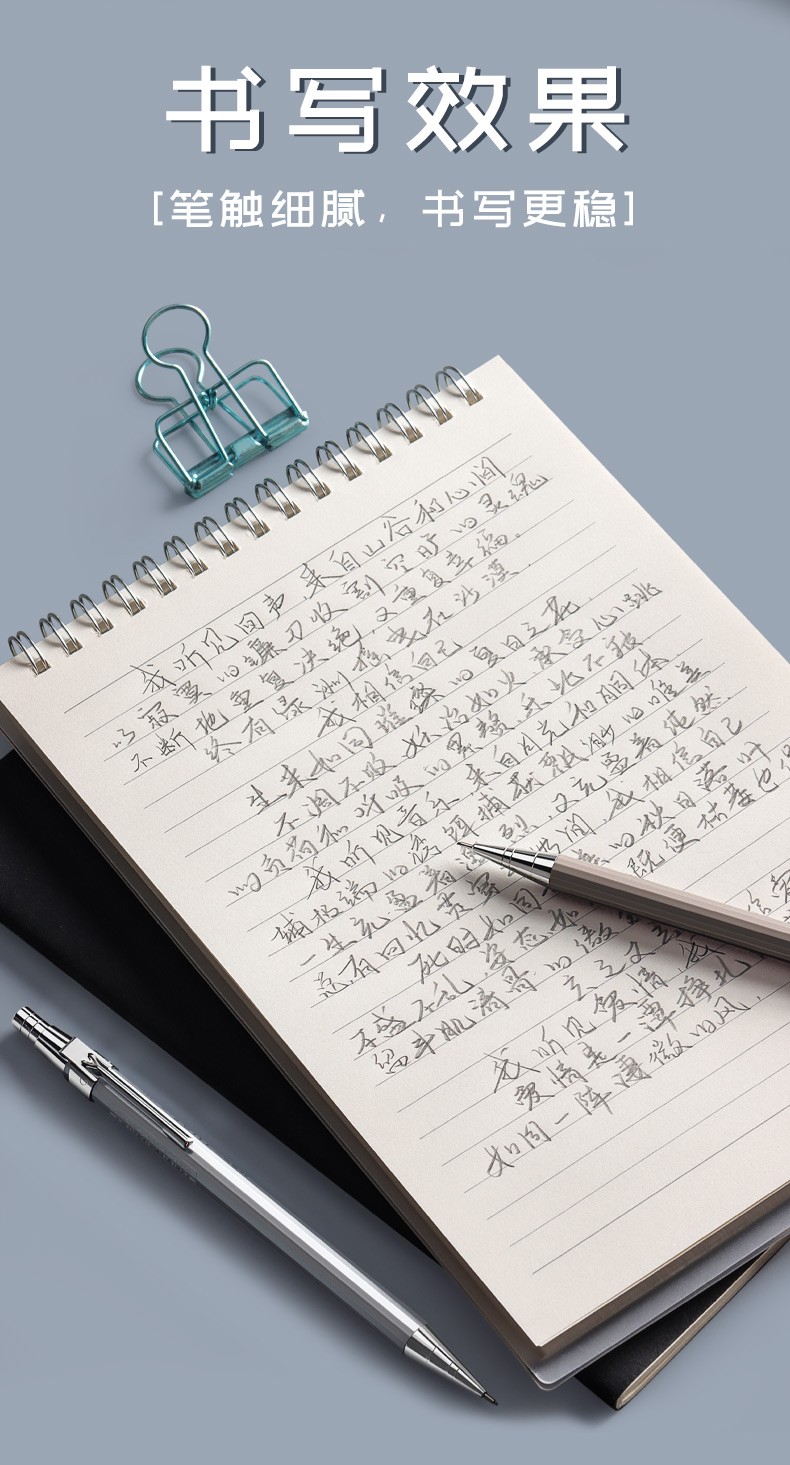 书写效果
[笔触细腻，书写更稳]
我听见回声，来自山谷和心间
以寂寞的镰刀收割空旷的灵魂
不断地重复决绝，又重复幸福。
终有绿洲摇曳在沙漠。
我相信自己
生来如同璀璨的夏日之花
不凋不败，妖冶如火，承受心跳
的负荷和呼吸的累赘，乐此不疲
我听见音乐，来自月光和胴体
辅极端的诱饵捕获飘渺的唯美
一生充盈着激烈，又充盈着纯然
总有回忆贯穿于世间，我相信自己
死时如同 的秋日落叶
不盛不乱，姿态如 既便枯萎也保
留丰肌清骨的傲 
玄之又玄
我听见爱情，我 信爱
爱情是一潭挣扎
如同一阵凄微的风，